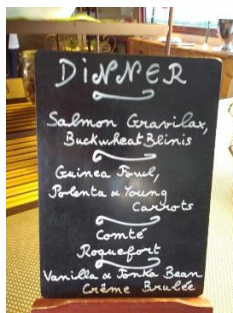 DINNER
Salmon Gravilax,
Buckwheat Blinis
Guinea Fowl,
Polenta & Young
Carrots
Comté
Roquefort
Vanilla & Tonka Bean
Crème Brulée